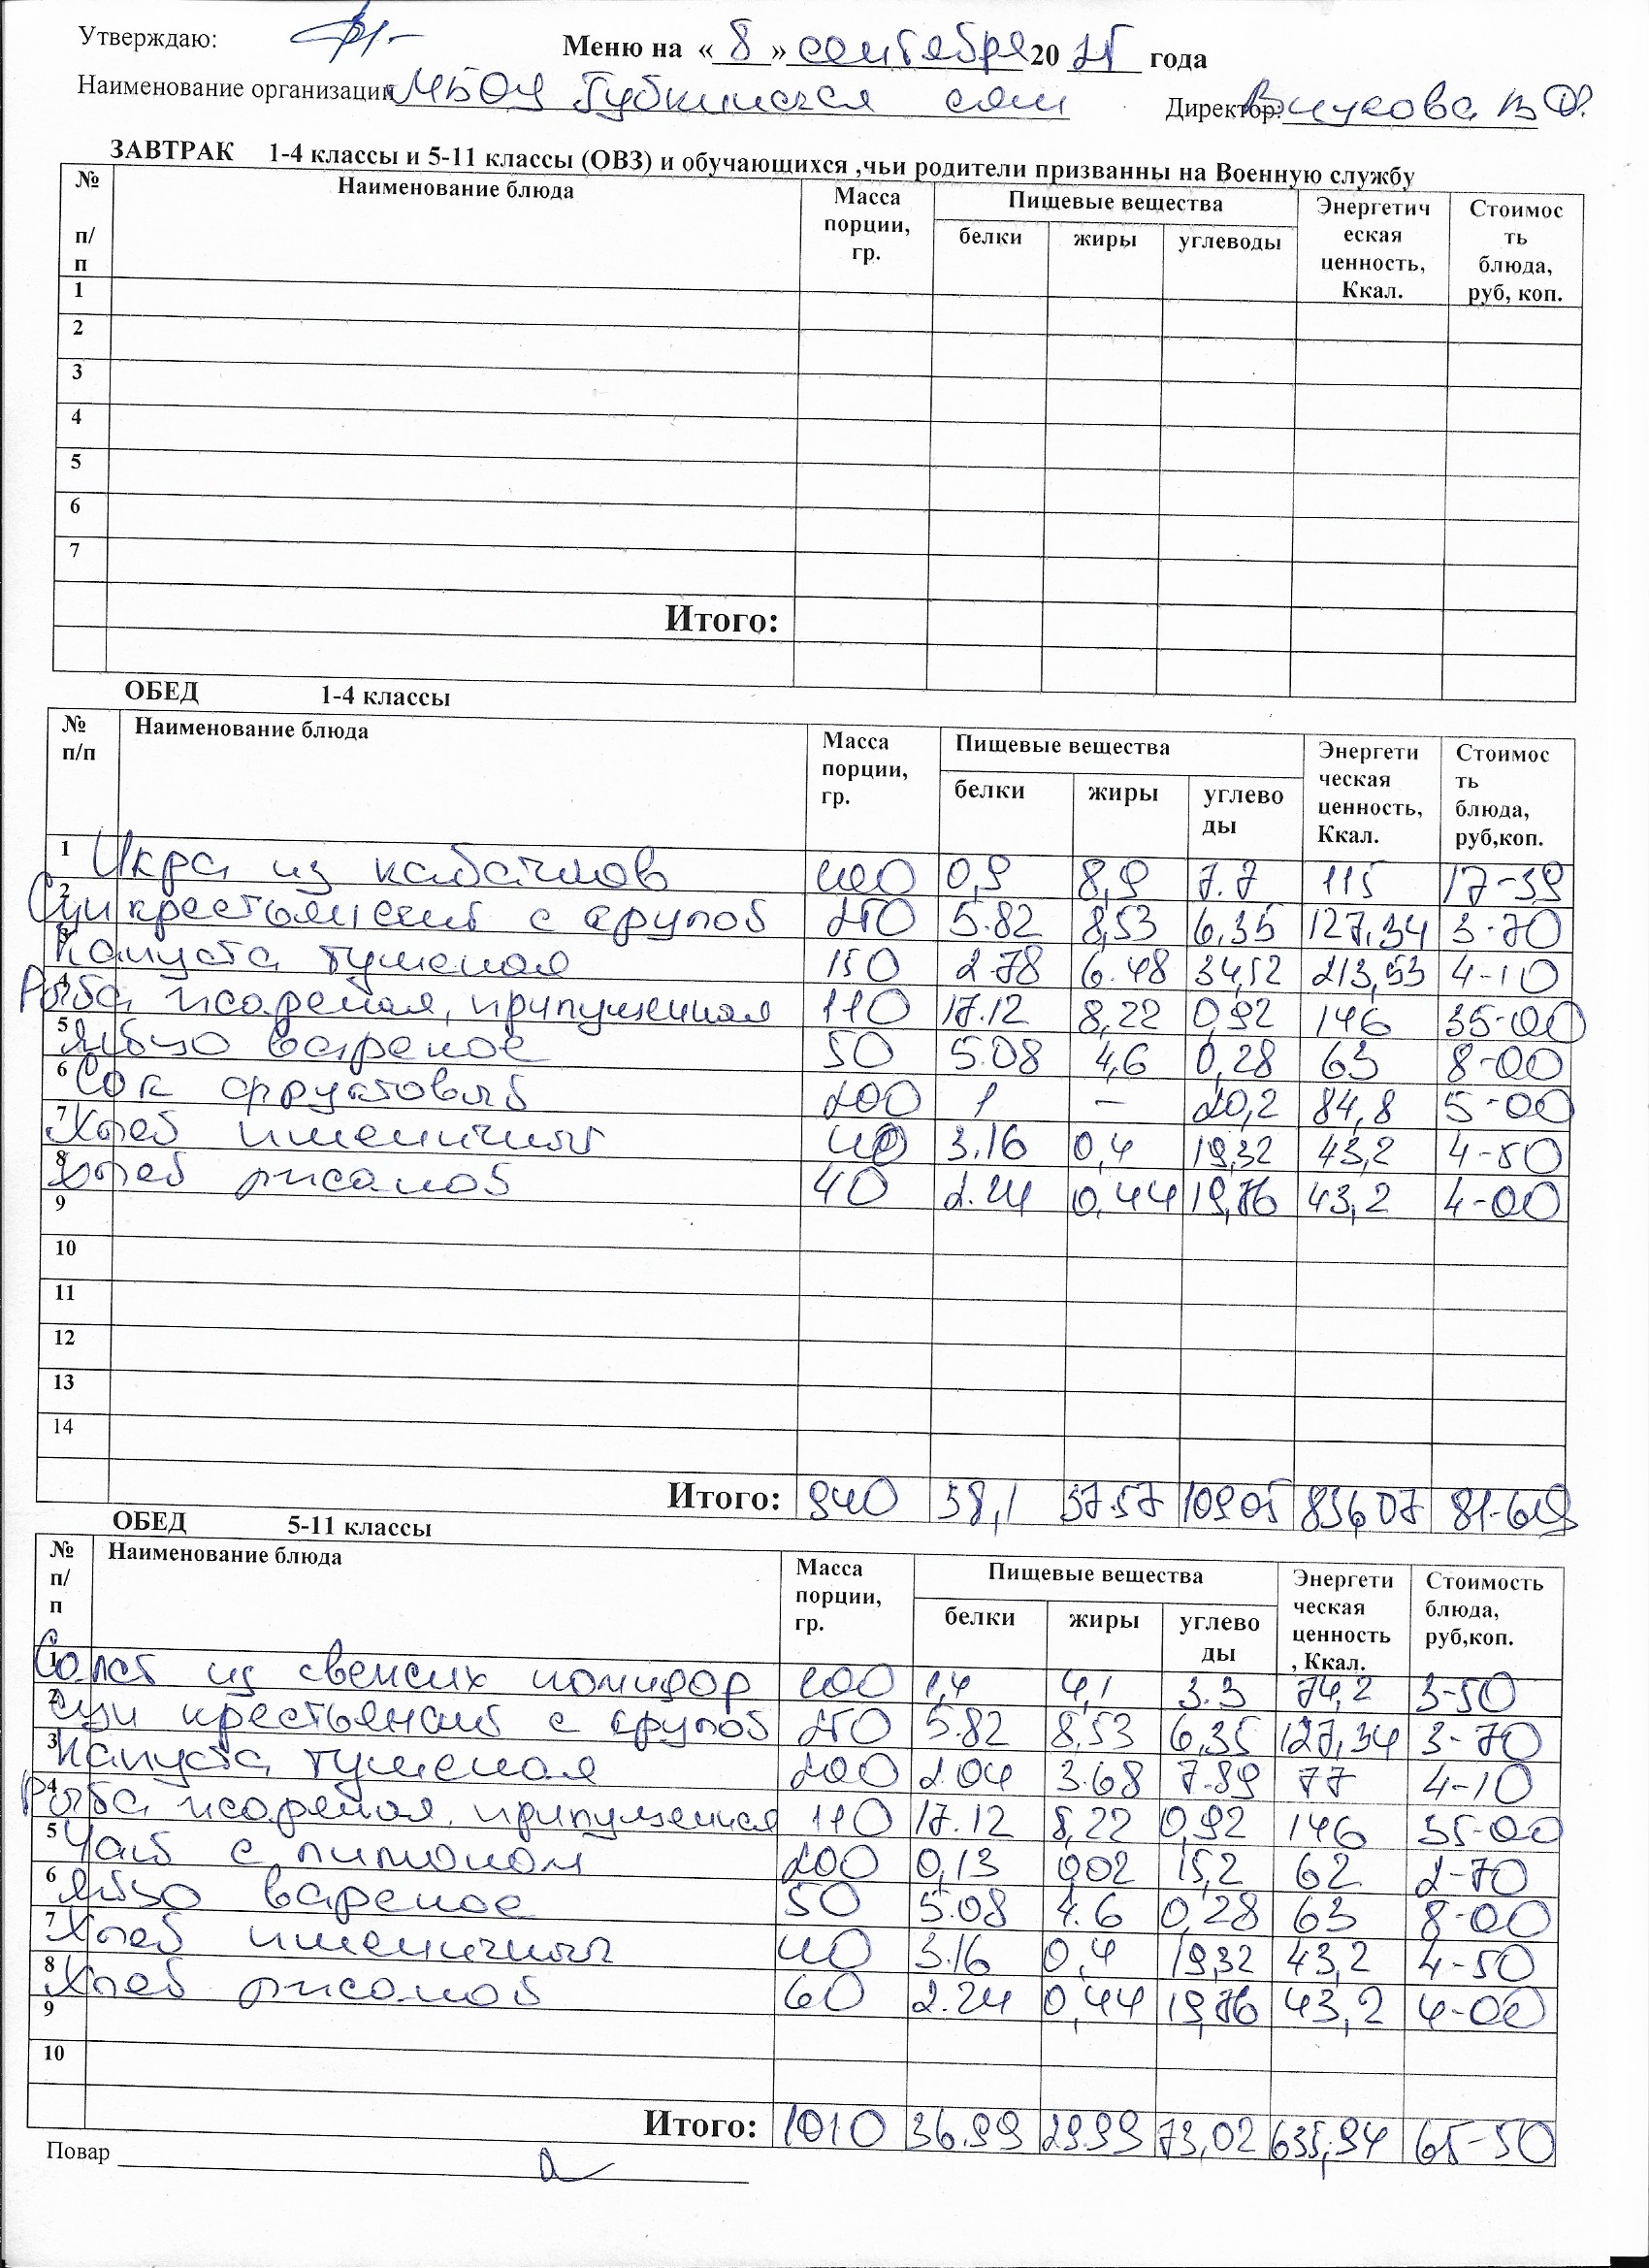 Утверждаю:
Меню на « 8 » сентября 20 25 года
Наименование организации МБОУ Губкинская сош Директор: Внукова В Ф.
ЗАВТРАК 1-4 классы и 5-11 классы (ОВЗ) и обучающихся ,чьи родители призванны на Военную службу
№ п/п Наименование блюда Масса порции, гр. Пищевые вещества Энергетическая ценность, Ккал. Стоимость блюда, руб, коп.
белки жиры углеводы
1
2
3
4
5
6
7
Итого:
ОБЕД 1-4 классы
№ п/п Наименование блюда Масса порции, гр. Пищевые вещества Энергетическая ценность, Ккал. Стоимость блюда, руб,коп.
белки жиры углеводы
1 Икра из кабачков 100 0,9 8,9 7.7 115 17-39
2 Суп крестьянский с крупой 250 5.82 8,53 6,35 127,34 3-70
3 Капуста тушеная 150 2.78 6.48 34,52 213,53 4-10
4 Рыба жареная, припущенная 110 17.12 8,22 0,92 146 35-00
5 Яйцо вареное 50 5.08 4,6 0,28 63 8-00
6 Сок фруктовый 200 1 – 20,2 84,8 5-00
7 Хлеб пшеничный 40 3.16 0,4 19,32 43,2 4-50
8 Хлеб ржаной 40 2.24 0,44 19,76 43,2 4-00
9
10
11
12
13
14
Итого: 940 38,1 37.57 109 05 836,07 81-69
ОБЕД 5-11 классы
№ п/п Наименование блюда Масса порции, гр. Пищевые вещества Энергетическая ценность, Ккал. Стоимость блюда, руб,коп.
белки жиры углеводы
1 Салат из свежих помидор 100 1,4 4,1 3.3 74,2 3-50
2 Суп крестьянский с крупой 250 5.82 8,53 6,35 127,34 3-70
3 Капуста тушеная 200 2.04 3.68 7.89 77 4-10
4 Рыба жареная, припущенная 110 17.12 8,22 0,92 146 35-00
5 Чай с лимоном 200 0,13 0,02 15,2 62 2-70
6 Яйцо вареное 50 5.08 4.6 0,28 63 8-00
7 Хлеб пшеничный 40 3.16 0,4 19,32 43,2 4-50
8 Хлеб ржаной 60 2.24 0,44 19,76 43,2 4-00
9
10
Итого: 1010 36.99 29.99 73,02 635,94 65-50
Повар